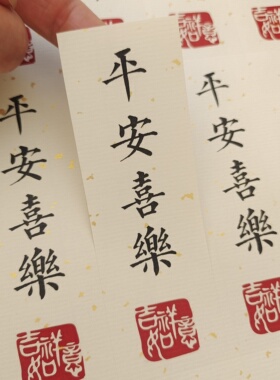 平安喜樂
吉祥如意
平安喜樂
吉祥如意
平安喜樂
吉祥如意